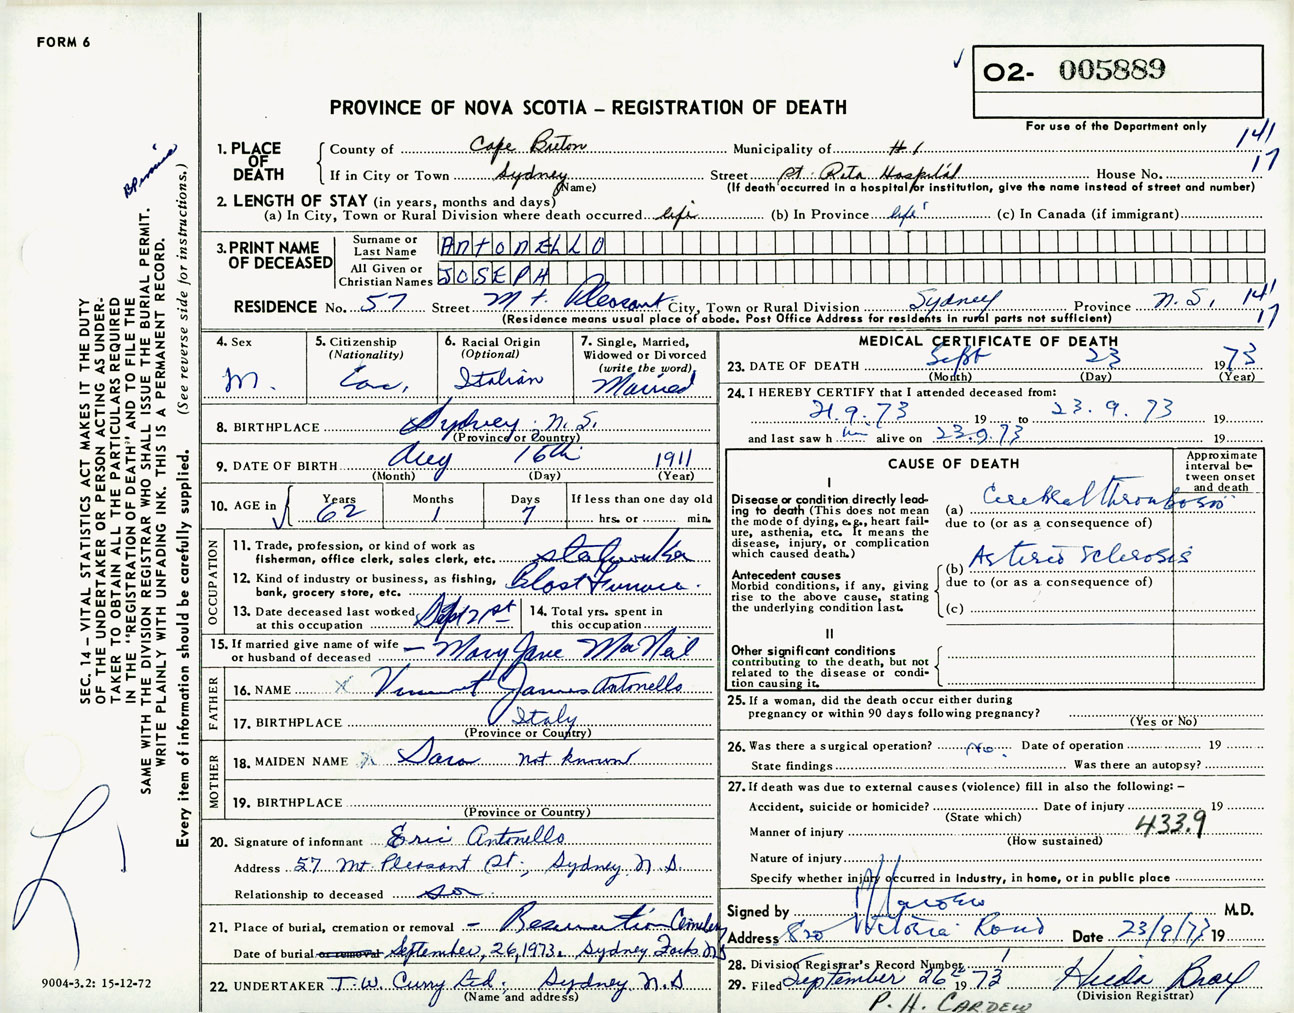 FORM 6
O2- 005889
PROVINCE OF NOVA SCOTIA – REGISTRATION OF DEATH
For use of the Department only
141
17
1. PLACE OF DEATH
County of Cape Breton Municipality of #1
If in City or Town Sydney Street St. Rita Hospital House No.
(Name) (If death occurred in a hospital or institution, give the name instead of street and number)
2. LENGTH OF STAY (in years, months and days)
(a) In City, Town or Rural Division where death occurred life (b) In Province life (c) In Canada (if immigrant)
3. PRINT NAME OF DECEASED
Surname or Last Name ANTONELLO
All Given or Christian Names JOSEPH
RESIDENCE No. 57 Street Mt. Pleasant City, Town or Rural Division Sydney Province N.S. 141
17
(Residence means usual place of abode. Post Office Address for residents in rural parts not sufficient)
4. Sex M.
5. Citizenship (Nationality) Can.
6. Racial Origin (Optional) Italian
7. Single, Married, Widowed or Divorced (write the word) Married
8. BIRTHPLACE Sydney, N.S.
(Province or Country)
9. DATE OF BIRTH Aug 16th 1911
(Month) (Day) (Year)
10. AGE in Years 62 Months 1 Days 7 If less than one day old hrs. or min.
OCCUPATION
11. Trade, profession, or kind of work as fisherman, office clerk, sales clerk, etc.
12. Kind of industry or business, as fishing, bank, grocery store, etc. Blast Furnace.
13. Date deceased last worked at this occupation Sept 21st
14. Total yrs. spent in this occupation
15. If married give name of wife or husband of deceased – Mary Jane MacNeil
FATHER
16. NAME x Vincent James Antonello
17. BIRTHPLACE Italy
(Province or Country)
MOTHER
18. MAIDEN NAME x Sara not known
19. BIRTHPLACE
(Province or Country)
20. Signature of informant Eric Antonello
Address 57 Mt. Pleasant St., Sydney N.S
Relationship to deceased son
21. Place of burial, cremation or removal – Resurrection Cemetery
Date of burial or removal September, 26, 1973. Sydney Forks N.S
22. UNDERTAKER T.W. Curry Ltd. Sydney N.S
(Name and address)
MEDICAL CERTIFICATE OF DEATH
23. DATE OF DEATH Sept 23 1973
(Month) (Day) (Year)
24. I HEREBY CERTIFY that I attended deceased from:
21.9.73 19 to 23.9.73 19
and last saw h im alive on 23.9.73 19
CAUSE OF DEATH
Approximate interval between onset and death
I
Disease or condition directly leading to death (This does not mean the mode of dying, e.g., heart failure, asthenia, etc. It means the disease, injury, or complication which caused death.)
(a) Cerebral thrombosis
due to (or as a consequence of)
Antecedent causes
Morbid conditions, if any, giving rise to the above cause, stating the underlying condition last.
(b) Arterio Sclerosis
due to (or as a consequence of)
(c)
II
Other significant conditions contributing to the death, but not related to the disease or condition causing it.
25. If a woman, did the death occur either during pregnancy or within 90 days following pregnancy?
(Yes or No)
26. Was there a surgical operation? No. Date of operation 19
State findings Was there an autopsy?
27. If death was due to external causes (violence) fill in also the following: –
Accident, suicide or homicide? Date of injury 19
(State which)
Manner of injury 433.9
(How sustained)
Nature of injury
Specify whether injury occurred in industry, in home, or in public place
Signed by M.D.
Address Victoria Road Date 23/9/73 19
28. Division Registrar's Record Number
29. Filed September 26th 1973 Hilda
(Division Registrar)
P. H. CARDEW
SEC. 14 – VITAL STATISTICS ACT MAKES IT THE DUTY
OF THE UNDERTAKER OR PERSON ACTING AS UNDER-
TAKER TO OBTAIN ALL THE PARTICULARS REQUIRED
IN THE "REGISTRATION OF DEATH" AND TO FILE THE
SAME WITH THE DIVISION REGISTRAR WHO SHALL ISSUE THE BURIAL PERMIT.
WRITE PLAINLY WITH UNFADING INK. THIS IS A PERMANENT RECORD.
Every item of information should be carefully supplied. (See reverse side for instructions.)
9004-3.2: 15-12-72